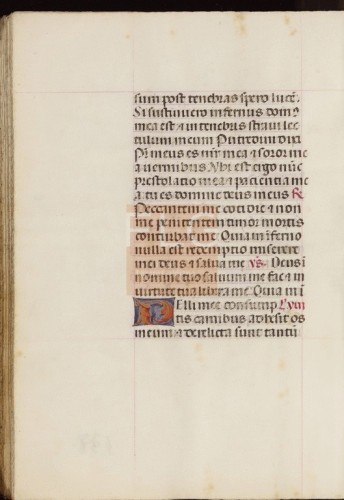 sum post tenebras spero lucē.
Si sustinuero infernus dom9
mea est & in tenebris stravi lec
tulum meum Putredini dixi
Pr̄ meus es mr̄ mea & soror me
a vermibus Ubi est ergo nūc
prestolatio mea & pacientia me
a tu es domine deus meus R
Peccantem me cotidie & non
me penitentem timor mortis
conturbat me Quia in inferno
nulla est redemptio miserere
mei deus & salva me vs. Deus ī
nomine tuo salvum me fac & in
virtute tua libera me Quia in ī
Elli mee consump Lviii
tis carnibus adhesit os
meum & derelicta sunt tantū